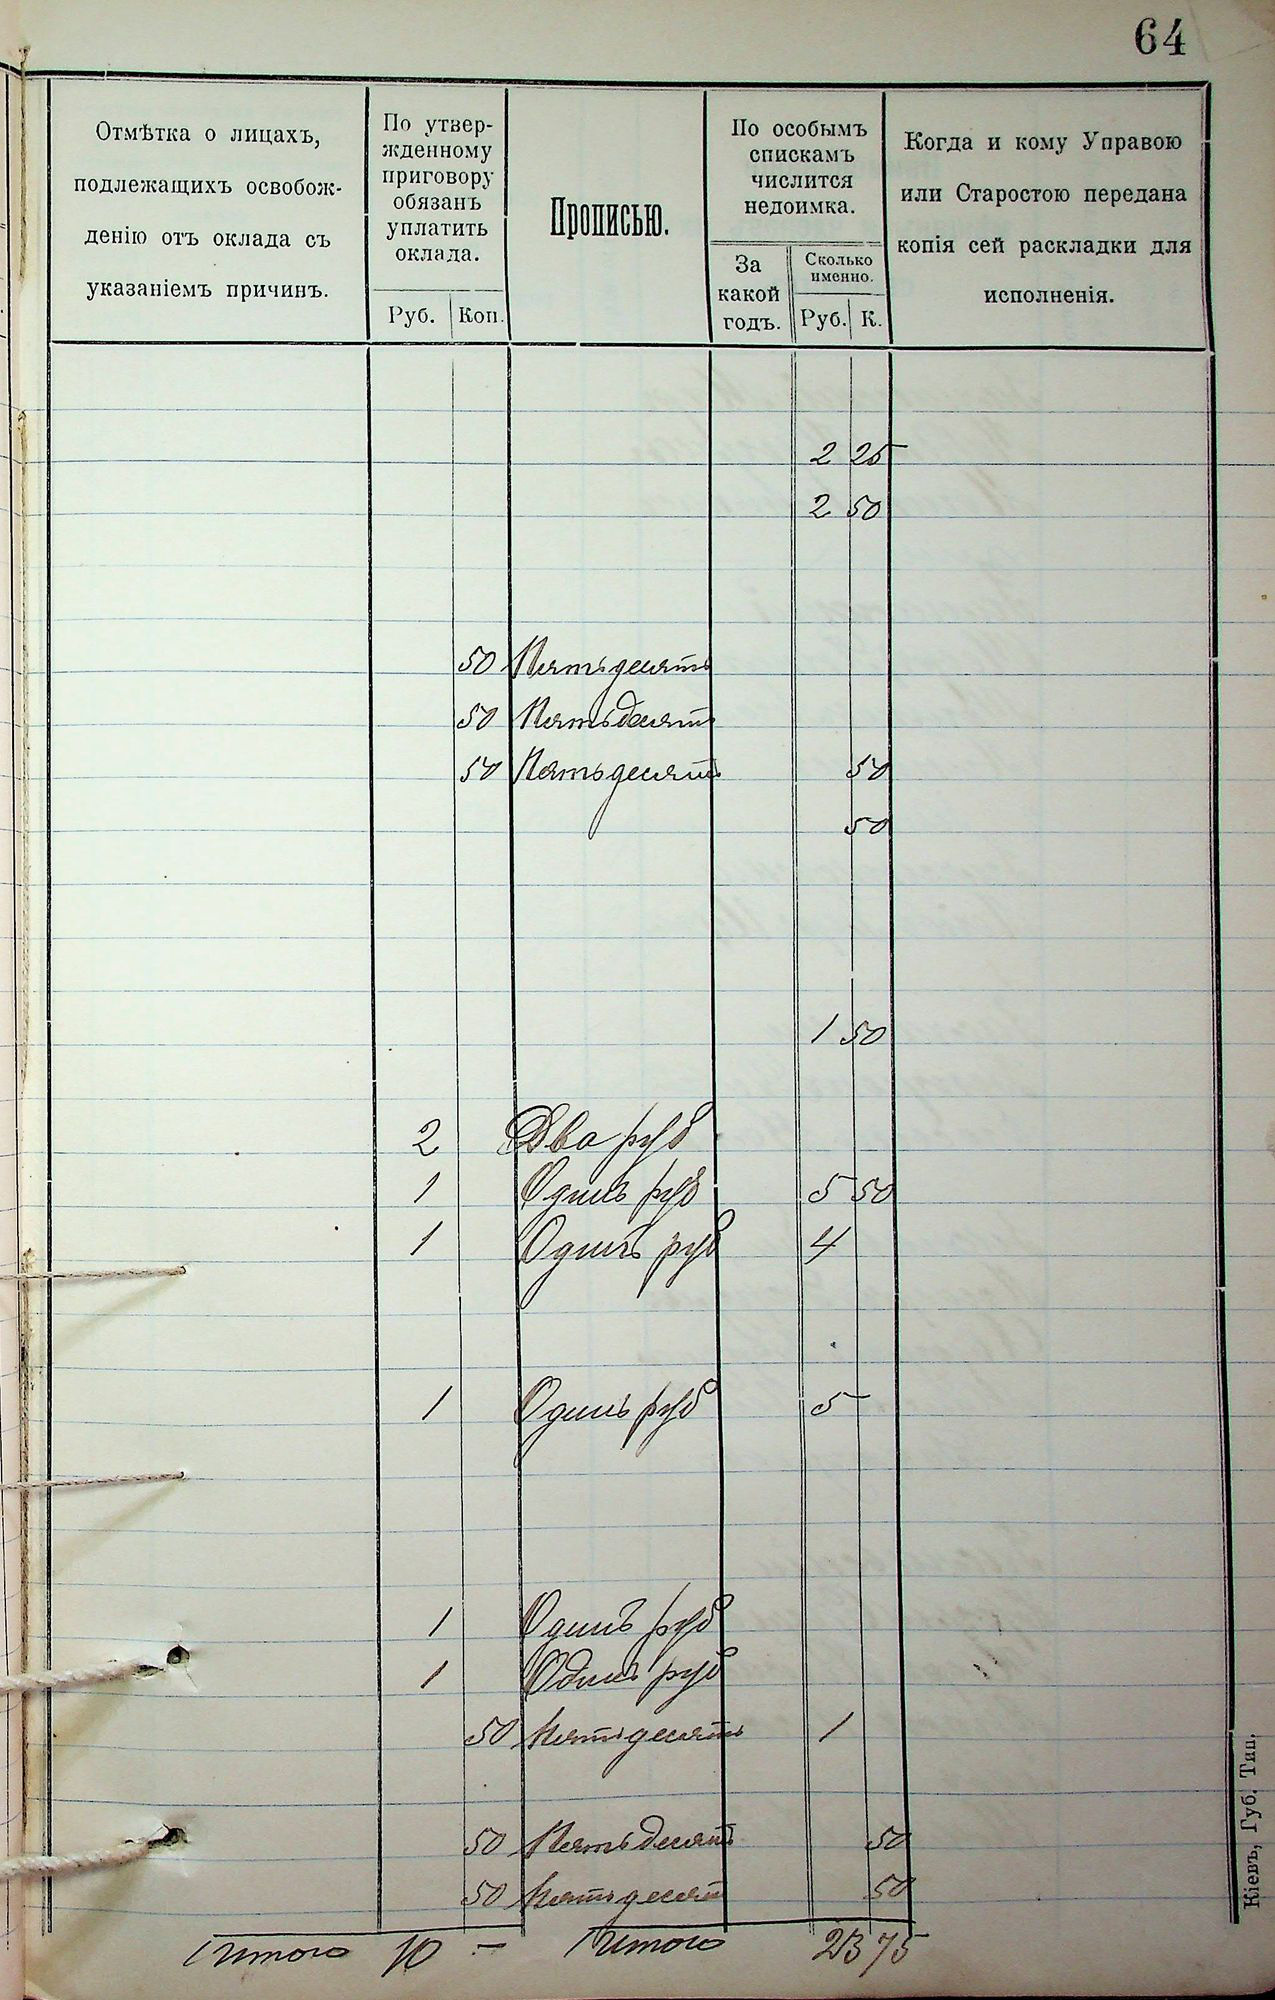 64
Отмѣтка о лицахъ,
подлежащихъ освобож-
денію отъ оклада съ
указаніемъ причинъ.
По утвер-
жденному
приговору
обязанъ
уплатить
оклада.
Руб. Коп.
Прописью.
По особымъ
спискамъ
числится
недоимка.
За
какой
годъ.
Сколько
именно.
Руб. К.
Когда и кому Управою
или Старостою передана
копія сей раскладки для
исполненія.
2 25
2 50
50 Пятьдесятъ
50 Пятьдесятъ
50 Пятьдесятъ 50
50
1 50
2 Два руб
1 Одинъ руб 5 50
1 Одинъ руб 4
1 Одинъ руб 5
1 Одинъ руб
1 Одинъ руб
50 Пятьдесятъ 1
50 Пятьдесятъ 50
50 Пятьдесят 50
Итого 10 — Итого 23 75
Кіевъ, Губ. Тип.